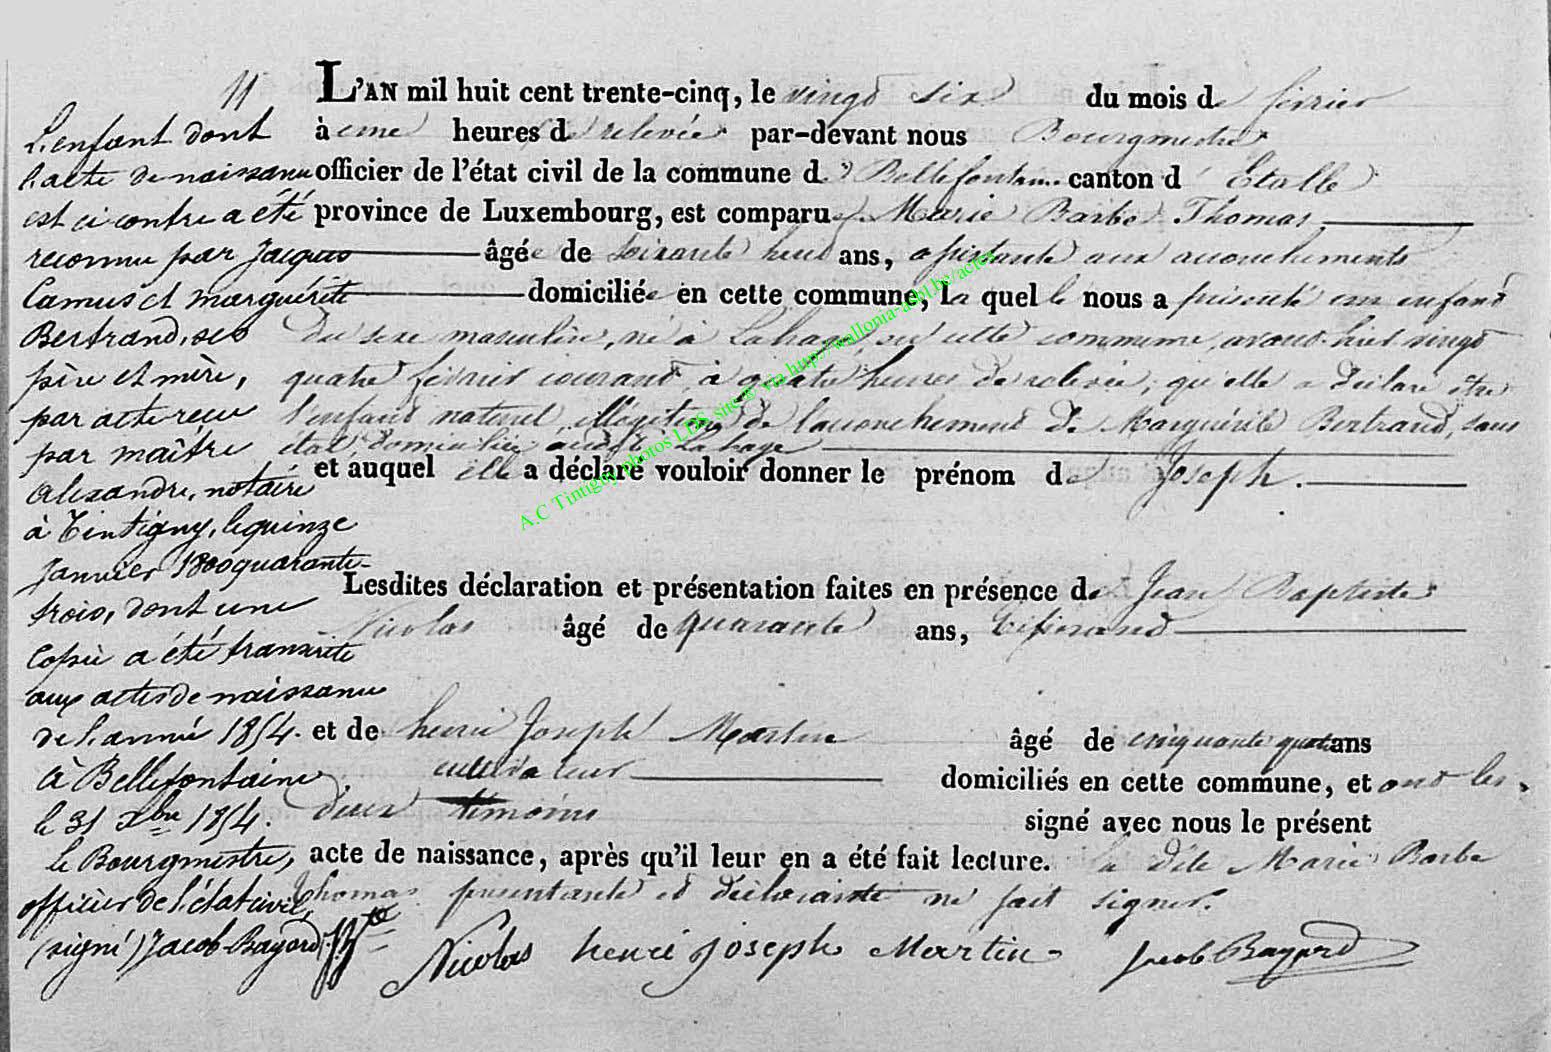 11
L'enfant dont
l'acte de naissance
est ci contre a été
reconnu par Jacques
Camus et marguérite
Bertrand, ses
père et mère,
par acte reçu
par maître
Alexandre, notaire
à Tintigny, le quinze
Janvier 1800 quarante-
trois, dont une
Copie a été transcrite
aux actes de naissance
de l'année 1854.
à Bellefontaine
le 31 Xbre 1854.
le Bourgmestre,
officier de l'état civil,
(signé) Jacob-Bayard
L'AN mil huit cent trente-cinq, le vingt six du mois de février
à une heures de relevée par-devant nous Bourgmestre
officier de l'état civil de la commune de Bellefontaine canton d'Etalle
province de Luxembourg, est comparue Marie Barbe Thomas
âgée de soixante huit ans, assistante aux accouchements
domiciliée en cette commune, laquelle nous a présenté un enfant
du sexe masculin, né à Lahage, en cette commune, avant-hier vingt
quatre février courant à quatre heures de relevée, qu'elle a déclaré être
l'enfant naturel, illégitime de l'accouchement de Marguérite Bertrand, sans
état, domiciliée audit Lahage
et auquel elle a déclaré vouloir donner le prénom de Joseph.
Lesdites déclaration et présentation faites en présence de Jean Baptiste
Nicolas âgé de quarante ans, Tisserand
et de henri Joseph Martin âgé de cinquante quatre ans
cultivateur domiciliés en cette commune, et ont les
deux témoins signé avec nous le présent
acte de naissance, après qu'il leur en a été fait lecture. la dite Marie Barbe
Thomas présentante et déclarante ne sait signer.
Nicolas henri joseph Martin Jacob Bayard
A.C Tintigny photos LDS site via http://wallonia-asbl.be/actes